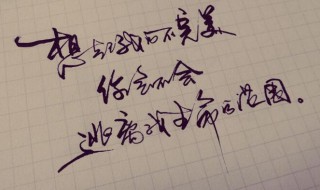 想到我的不完美
你会不会
逃离我生命的范围。